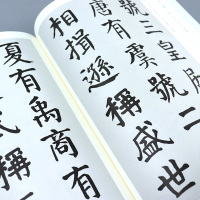 號三皇居
唐有虞號二
相揖遜稱盛世
夏有禹商有
稱